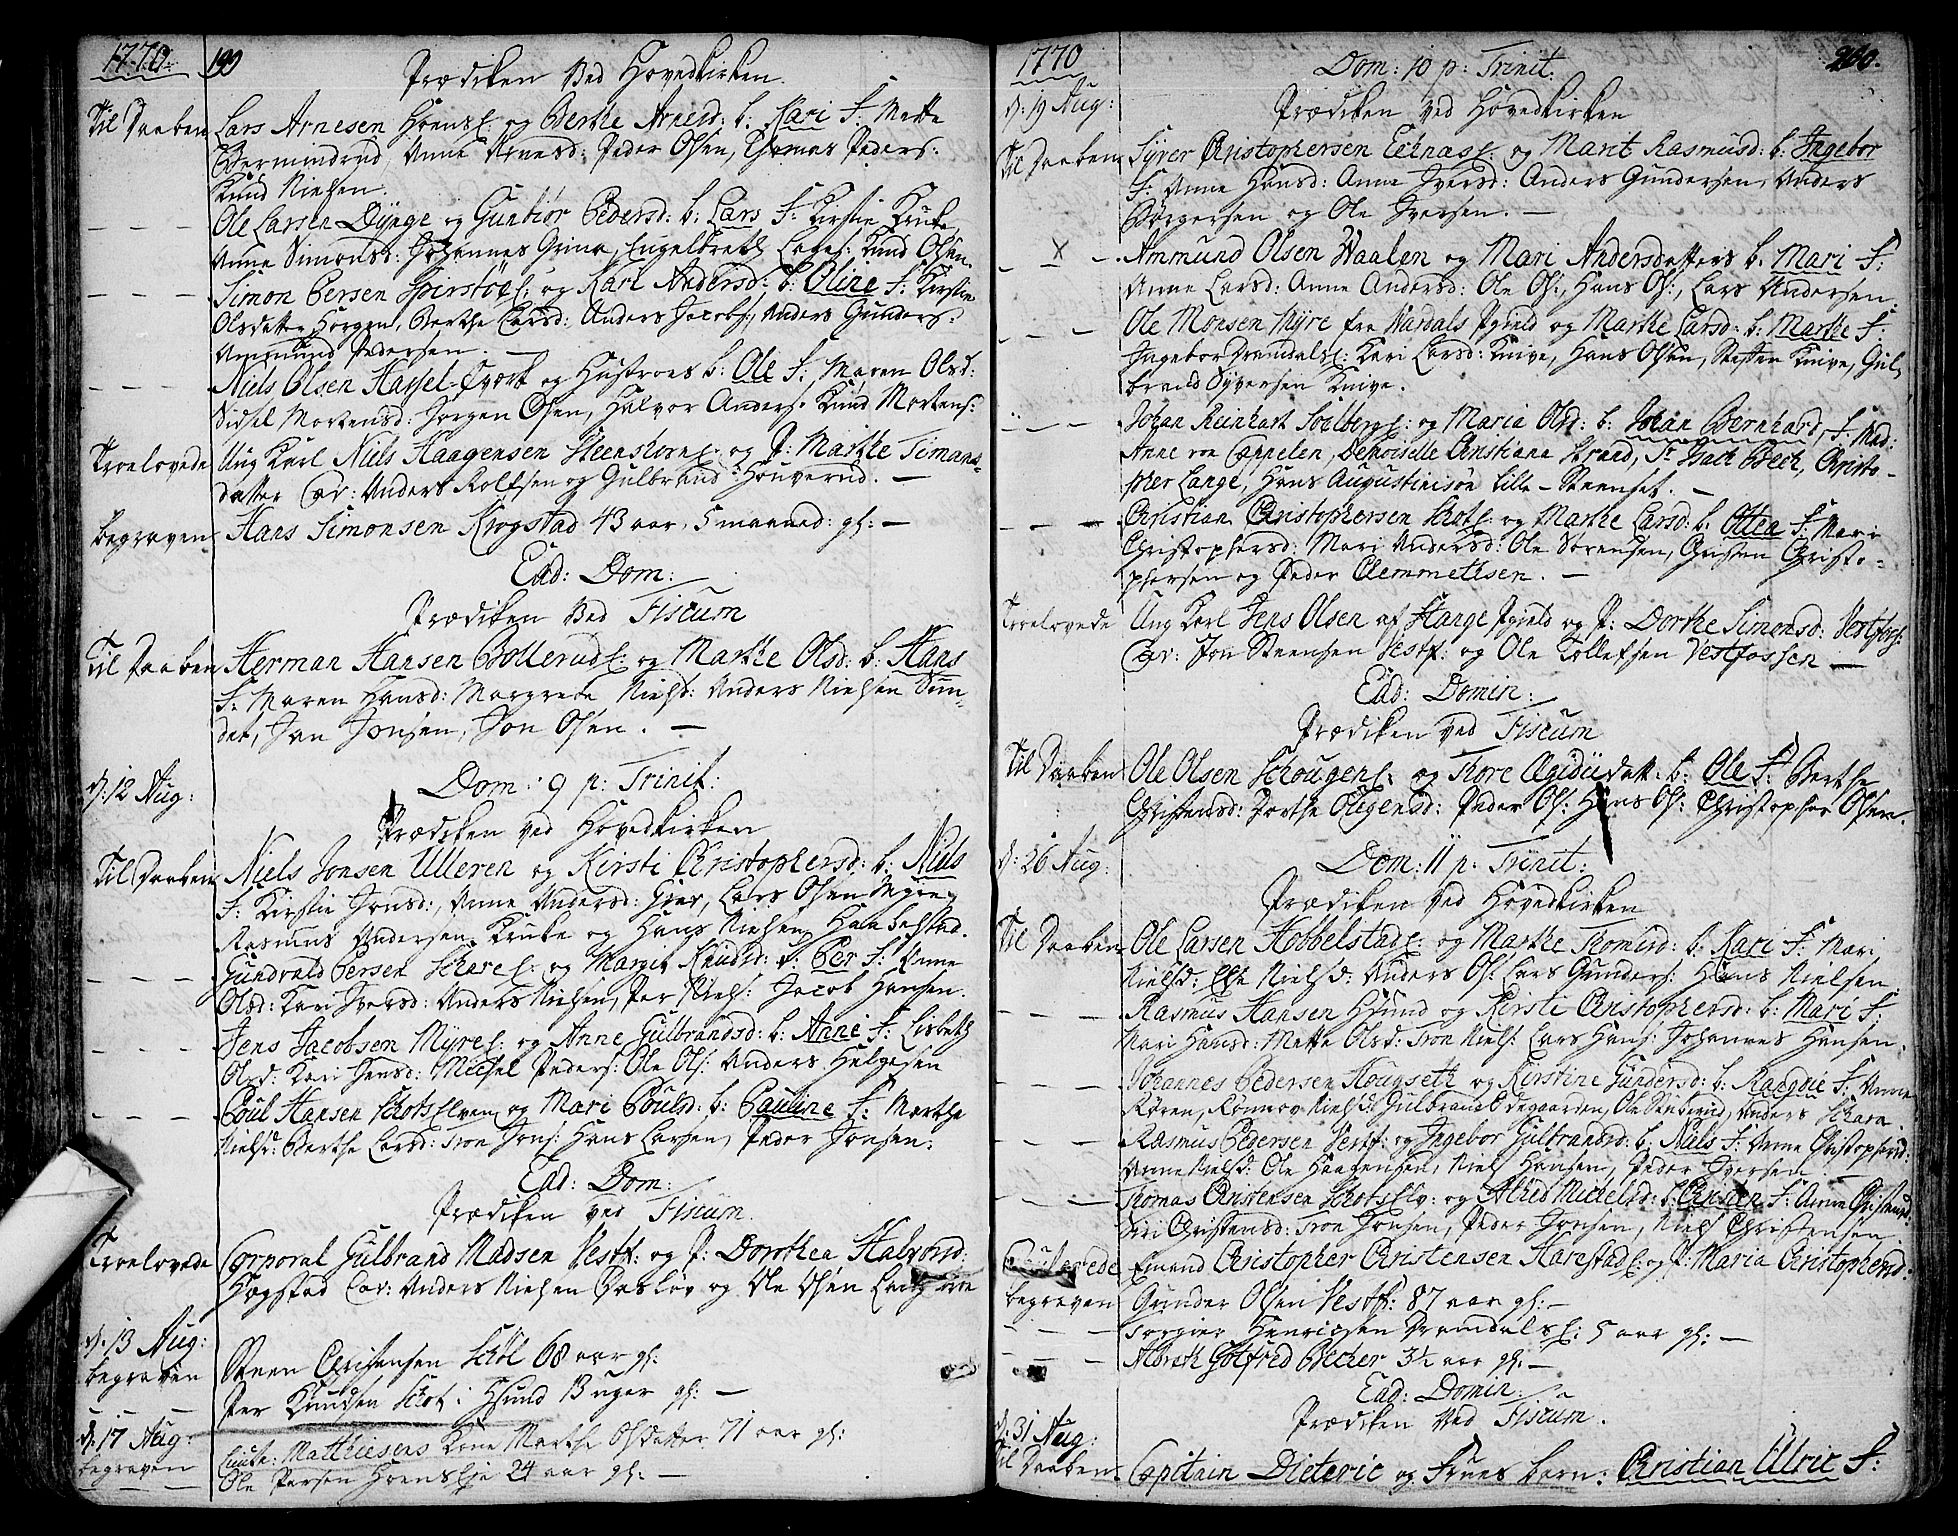 1770. 199
Prædiken Ved Hovedkirken.
Til Daaben Lars Arnesen Hoens E: og Berthe Arnesd: b: Kari F: Mette
Anne Arnesd: Peder Olsen, Thomas Peders:
Knud Nielsen.
- - - Ole Larsen Dÿnge og Guntior Pedersd: b: Lars F: Kirstie Kruke
Anne Simonsd: Johannes Grina, Engelbreth Lars: Knud Olsen.
- - - Simon Persen E: og Kari Andersd: b: Oline F: Kirstie
Olsdatter Horgen, Berthe Larsd: Anders Jacobs:, Anders Gunders:
Ammund Pedersen.
- - - Niels Olsen Hassel-Verk og Hustroes b: Ole F: Maren Olsd:
Sidsel Mortensd: Jørgen Olsen, Halvor Anders: Knud Mortens:
Troelovede Ung Karl Niels Haagensen E: og P: Marthe Simons-
datter Cav: Anders Rolfsen og Gulbrand Houverud. -
begraven Hans Simonsen Krogstad 43 aar, 5 maaned: gl: -
Ead: Dom:
Prædiken Ved Fiscum
Til Daaben Herman Hansen Bollerud E: og Marthe Olsd: b: Hans
F: Maren Hansd: Margrede Nielsd: Anders Nielsen Sun-
det, Jan Jonsen, Jon Olsen. -
d: 12 Aug: Dom: 9 p: Trinit:
Prædiken ved Hovedkirken
Til Daaben Niels Jonsen Ulleren og Kirsti Christophersd: b: Niels
F: Kirstie Jonsd:, Anne Andersd: Lars Olsen
Rasmus Andersen Kruke og Hans Nielsen Haabelstad.
- - - Gundvald Persen Schare E: og Margit Knudsd: b: Per F: Anne
Olsd: Kari Iversd: Anders Nielsen, Per Niels: Jacob Hansen.
- - - Jens Jacobsen Myre E: og Anne Gulbrandsd: b: Anne F: Lisbeth
Olsd: Kari Jensd: Michel Peders: Ole Ols: Anders Helgesen
- - - Poul Hansen Schotselven og Mari Poulsd: b: Pauline F: Marthe
Nielsd: Berthe Larsd: Tron Jons: Hans Larsen, Peder Jonsen:
Ead: Dom:
Prædiken ved Fiscum.
Troelovede Corporal Gulbrand Madsen Vestf: og P: Dorthea Halvorsd:
Hogstad Cav: Anders Nielsen og Ole Olsen
d: 13 Aug: Steen Christensen Schøl 68 aar gl:
begraven Per Knudsen Schot i Hsund 13 uger gl: -
d: 17 Aug: Lieute: Mathiesens Kone Marthe Olsdatter 71 aar gl:
begraven Ole Persen Hoens Eje 24 aar gl: -
1770 200.
Dom: 10 p: Trinit:
d: 19 Aug: Prædiken ved Hovedkirken
Til Daaben Syver Christophersen Eknas E: og Marit Rasmusd: b: Ingebor
F: Anne Hansd: Anne Iversd: Anders Gundersen, Anders
Børgersen og Ole Iversen. -
- X - Ammund Olsen Waalen og Mari Andersdatters b: Mari F:
Anne Larsd: Anne Andersd: Ole Ols:, Hans Ols:, Lars Andersen.
- - Ole Monsen Myre fra Wardals Pgield og Marthe Larsd: b: Marthe F:
Ingebor Dramdals E: Kari Larsd: Knive, Hans Olsen, Steffen Knive, Gul-
brand Syversen Knive.
- - - Johan Reinhart Soelberg E: og Maria Olsd: b: Johan Bernhard, F: Mad:
Anne von Cappelen, Demoiselle Christiane Strand, Sr. Isach Bech, Christo-
pher Lange, Hans Augustinisøn Lille-Steenset. -
- - - Christian Christophersen Schot E: og Marthe Larsd: b: Otten F: Mari
Christophersd: Mari Andersd: Ole Sørensen, Christen Christo-
phersen og Peder Clemmetsen. -
Troelovede Ung Karl Jens Olsen af Stange Pgield og P: Dorthe Simonsd: Vestfoss:
Cav: Jon Steensen Vestf: og Ole Tollefsen Vestfossen -
Ead: Domin:
Prædiken ved Fiscum
Til Daaben Ole Olsen Schougen E: og Thore Ægidiidatt: b: Ole F: Berthe
Christensd: Dorthe Peder Ols: Hans Ols: Christopher Olsen.
d: 26 Aug: Dom: 11 p: Trinit:
Prædiken ved Hovedkirken
Til Daaben Ole Larsen Hobbelstad E: og Marthe Thomesd: b: Kari F: Mari
Nielsd: Else Nielsd: Anders Ols: Lars Gunders: Hans Nielsen.
- - - Rasmus Hansen Hsund og Kirsti Christophersd: b: Mari F:
Mari Hansd: Mette Olsd: Tron Niels: Lars Hans: Johannes Hansen.
- - - Johannes Pedersen Hougseth og Kirstine Gundersd: b: Rangdie F: Anne
Røren, Rønnov Nielsd: Gulbrand Ødegaarden, Ole Anders Schara.
- - - Rasmus Pedersen Vestf: og Ingebor Gulbrandsd: b: Niels F: Anne Christophersd:
Anne Nielsd: Ole Haagensen, Niels Hansen, Peder Iversen. -
- - - Thomas Christensen Schots Elv: og Alhed Michelsd: b: Christen F: Anne Christensd:
Siri Christensd: Tron Jonsen, Peder Jonsen, Niels Christensen.
Emand Christopher Christensen Harestad E: og P: Maria Christophersd:
begraven Gunder Olsen Vestf: 87 aar gl: -
- - - Torgier Henricsen Dramdals E: 5 aar gl: -
- - - Albreth Gotfred Becher 3½ aar gl: -
Ead: Domin:
Prædiken Ved Fiscum.
d: 31 Aug:
Til Daaben. Capitain Dieteric og Frues barn: Christian Ulric F: